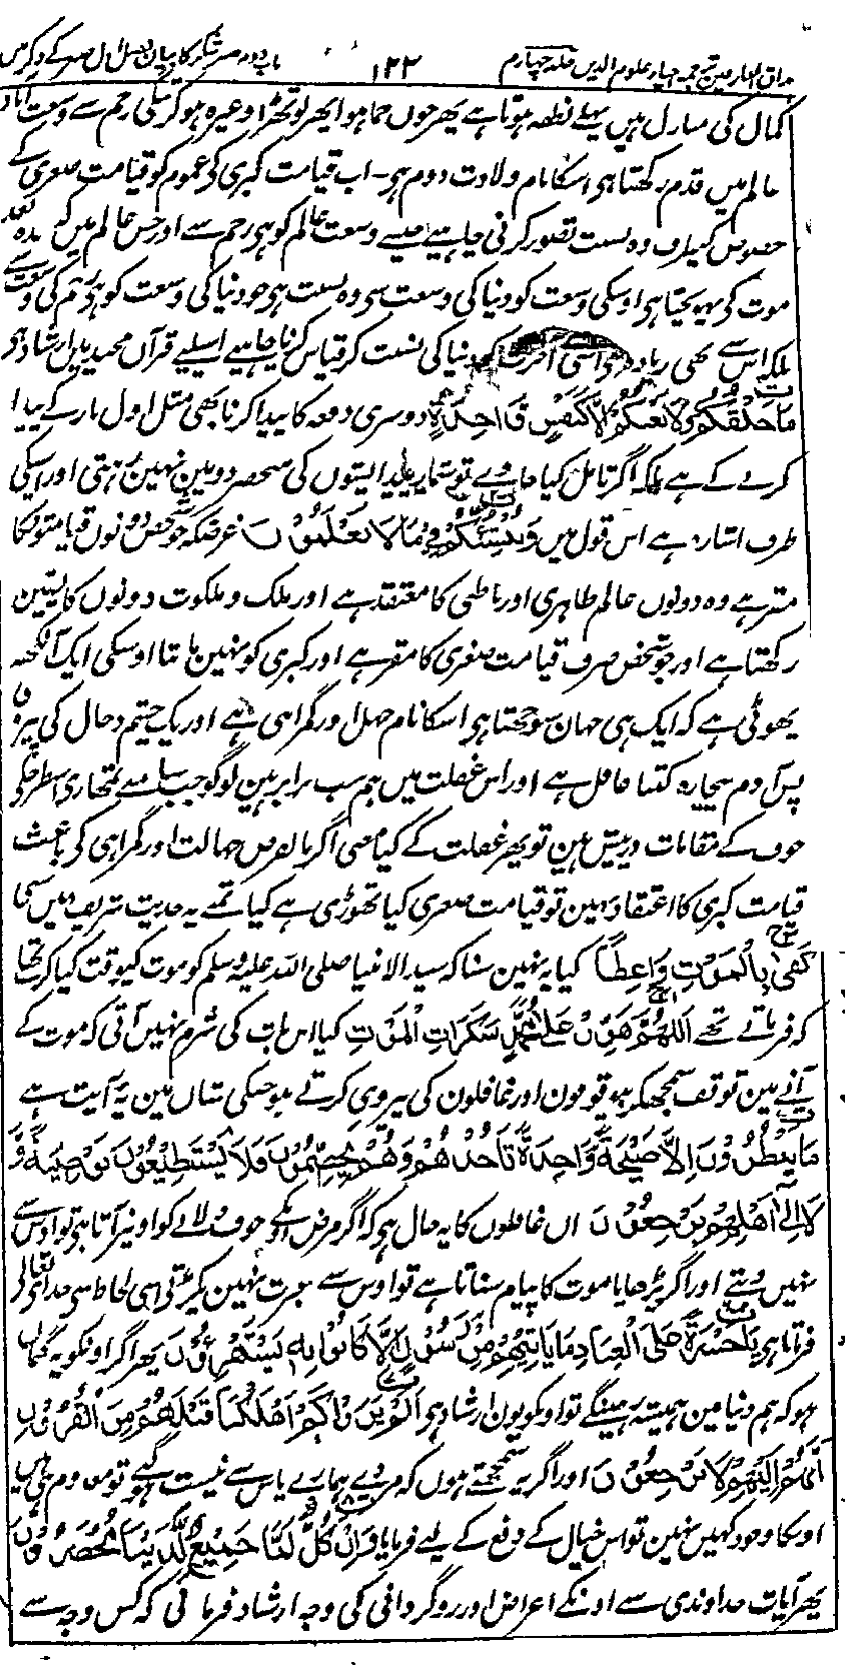 مذاق العارفین ترجمہ احیاء علوم الدین جلد چہارم ۱۲۲ باب دوم صبر و شکر کا بیان فصل اول صبر کے ذکر میں
کمال کی منازل ہیں پہلے نطفہ ہوتا ہے پھر خون جما ہوا پھر لوتھڑا وغیرہ ہو کر تنگی رحم سے وسعت آباد
عالم میں قدم رکھتا ہی اسکا نام ولادت دوم ہی۔ اب قیامت کبری کے عموم کو قیامت صغری کے
خصوص کیطرف وہ نسبت تصور کرنی چاہیے جیسے وسعت عالم کو ہی رحم سے اور جس عالم میں کہ بندہ بعد
موت کے پہونچتا ہی اوسکی وسعت کو دنیا کی وسعت سی وہ نسبت ہی جو دنیا کی وسعت کو ہی رحم کی وسعت سے
بلکہ اس سے بھی زیادہ اسی آخرت کو دنیا کی نسبت کر قیاس کرنا چاہیے اسلیے قرآن مجید میں ارشاد ہی
مَا خَلْقُكُمْ وَلَا بَعْثُكُمْ إِلَّا كَنَفْسٍ وَّاحِدَةٍ دوسری دفعہ کا پیدا کرنا بھی مثل اول بار کے پیدا
کرنے کے ہے بلکہ اگر تامل کیا جاوے تو شمار پیدایشوں کی منحصر دو میں نہین رہتی اور اسیکی
طرف اشارہ ہے اس قول میں وَنُنْشِئَكُمْ فِي مَا لَا تَعْلَمُوْنَ غرضکہ جو شخص دونوں قیامتونکا
مقر ہے وہ دونوں عالم ظاہری اور باطنی کا معتقد ہے اور ملک و ملکوت دونوں کا یقین
رکھتا ہے اور جو شخص صرف قیامت صغری کا مقر ہے اور کبری کو نہین مانتا اوسکی ایک آنکھ
پھوٹی ہے کہ ایک ہی جہان سوجھتا ہی اسکا نام جہل اور گمراہی ہے اور یک چشم دجال کی پیروی
پس آدم بیچارہ کتنا غافل ہے اور اس غفلت میں ہم سب برابر ہین لوگو جب سامنے تمھاری اسطرح کی
خوف کے مقامات درپیش ہین تو پھر غفلت کے کیا معنی اگر بالفرض جہالت اور گمراہی کے باعث
قیامت کبری کا اعتقاد نہین تو قیامت صغری کیا تھوڑی ہے کیا تمنے یہ حدیث شریف نہیں سنی
كَفٰى بِالْمَوْتِ وَاعِظًا کیا یہ نہین سنا کہ سید الانبیا صلی اللہ علیہ وسلم کو موت کیوقت کیا کرب تھا
کہ فرماتے تھے اَللّٰهُمَّ هَوِّنْ عَلٰى مُحَمَّدٍ سَكَرَاتِ الْمَوْتِ کیا اس بات کی شرم نہین آتی کہ موت کے
آنے مین توقف سمجھکر بیوقوفون اور غافلون کی پیروی کرتے ہو جنکی شان مین یہ آیت ہے
مَا يَنْظُرُوْنَ اِلَّا صَيْحَةً وَّاحِدَةً تَأْخُذُهُمْ وَهُمْ يَخِصِّمُوْنَ فَلَا يَسْتَطِيْعُوْنَ تَوْصِيَةً وَّ
لَا اِلٰى اَهْلِهِمْ يَرْجِعُوْنَ ان غافلوں کا یہ حال ہی کہ اگر مرض اونکے خوف دلانے کو اونپر آتا ہی تو اوس سے
نہیں ڈرتے اور اگر بڑھاپا موت کا پیام سناتا ہے تو اوس سے عبرت نہین پکڑتے اسی لحاظ سی خدا تعالی
فرماتا ہی يَا حَسْرَةً عَلَى الْعِبَادِ مَا يَأْتِيْهِمْ مِّنْ رَّسُوْلٍ اِلَّا كَانُوْا بِهٖ يَسْتَهْزِءُوْنَ پھر اگر اونکو یہ گمان
ہو کہ ہم دنیا مین ہمیشہ رہینگے تو اونکو یون ارشاد ہی اَلَمْ يَرَوْا كَمْ اَهْلَكْنَا قَبْلَهُمْ مِنَ الْقُرُوْنِ
اَنَّهُمْ اِلَيْهِمْ لَا يَرْجِعُوْنَ اور اگر یہ سمجھتے ہوں کہ مردے ہمارے پاس سے نیست ہو گیے تو معدوم ہی ہیں
اونکا وجود کہیں نہین تو اس خیال کے دفع کے لیے فرمایا وَاِنْ كُلٌّ لَّمَّا جَمِيْعٌ لَّدَيْنَا مُحْضَرُوْنَ
پھر آیات خداوندی سے اونکے اعراض اور روگردانی کی وجہ ارشاد فرمائی کہ کس وجہ سے